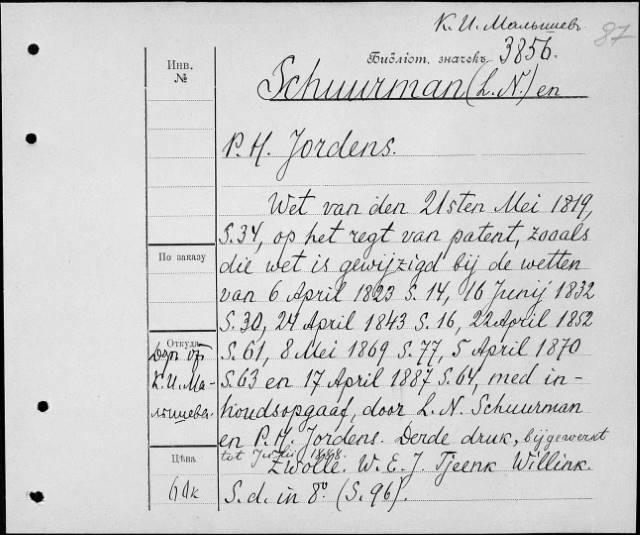 К. И. Малышевъ
87
Библіот. значекъ 3856.
Инв.
№
Schuurman (L. N.) en
P. H. Jordens.
Wet van den 21sten Mei 1819,
S. 34, op het regt van patent, zooals
По заказу
die wet is gewijzigd bij de wetten
van 6 April 1823 S. 14, 16 Junij 1832
S. 30, 24 April 1843 S. 16, 22 April 1852
Откуда
S. 61, 8 Mei 1869 S. 77, 5 April 1870
К. И. Ма-
S. 63 en 17 April 1887 S. 64, med in-
лышева.
houdsopgaaf, door L. N. Schuurman
en P. H. Jordens. Derde druk, bijgewerkt
tot Julij 1888.
Цѣна
Zwolle. W. E. J. Tjeenk Willink.
60к
S. d. in 8º (S. 96).